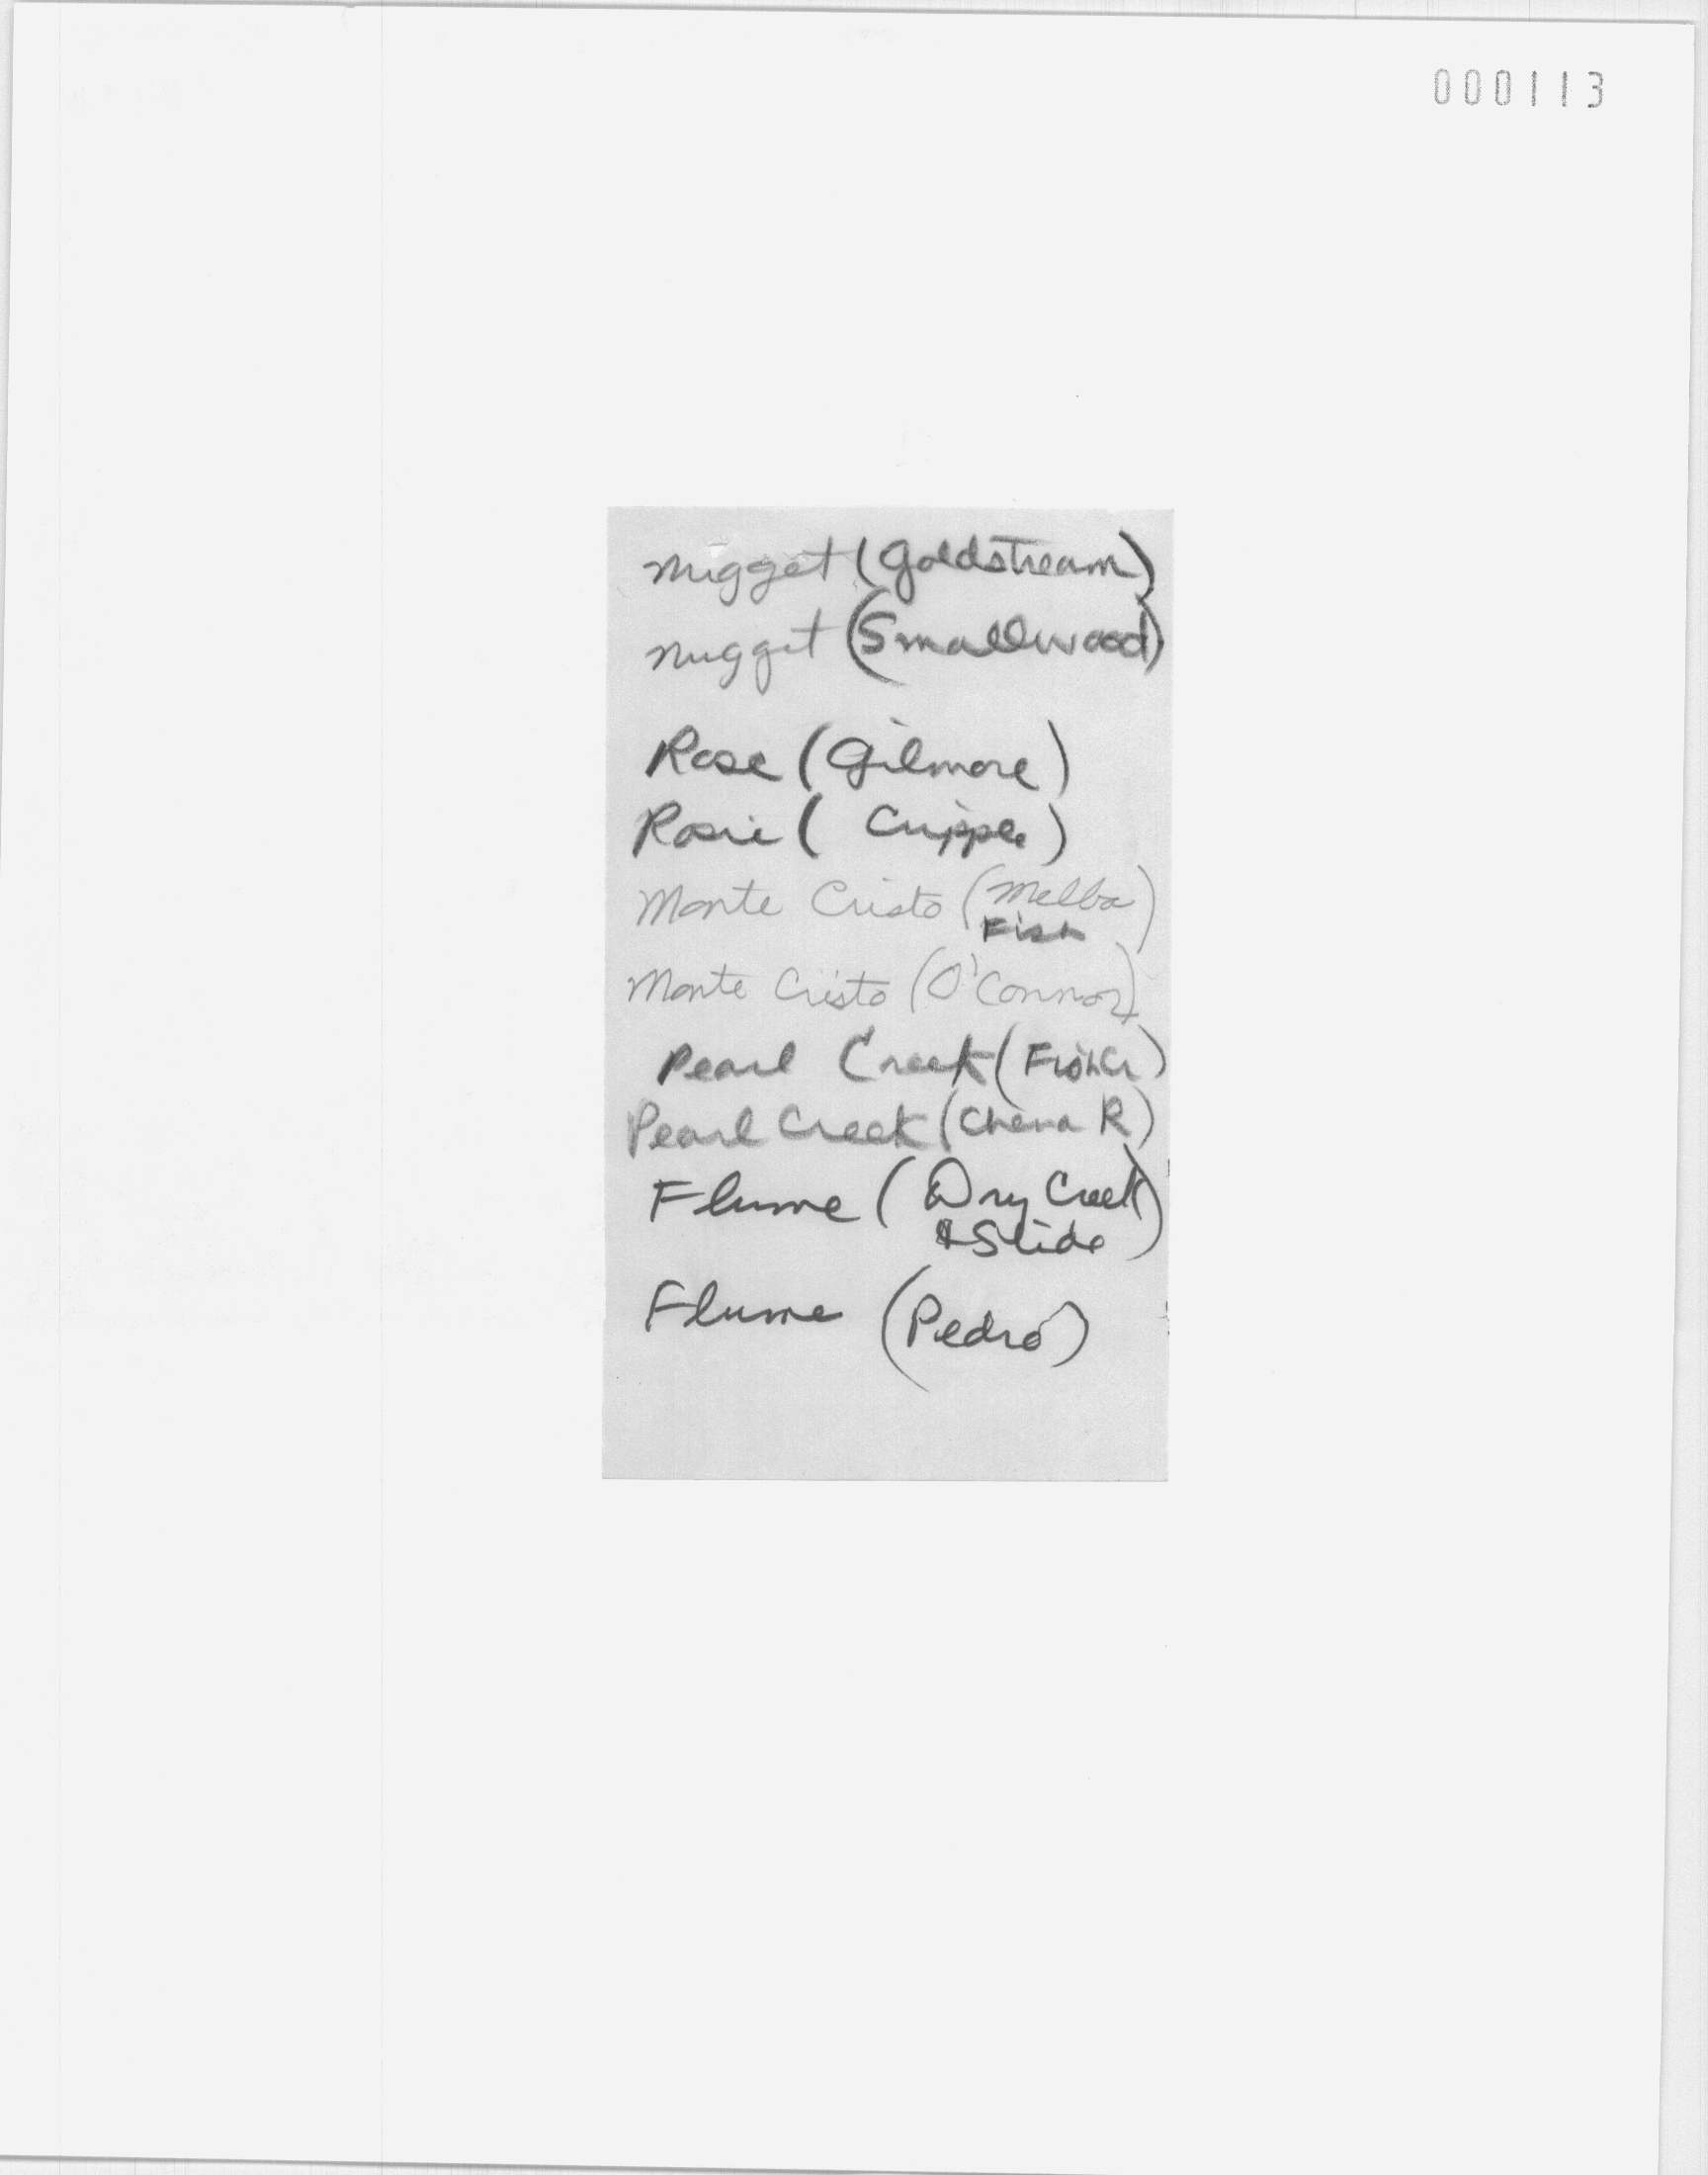 000113
Nugget (Goldstream)
Nugget (Smallwood)
Rose (Gilmore)
Rosie ( Cripple)
Monte Cristo (Melba
Fish)
Monte Cristo (O'Connor)
Pearl Creek (Fish Cr)
Pearl Creek (Chena R)
Flume (Dry Creek
& Slide)
Flume (Pedro)